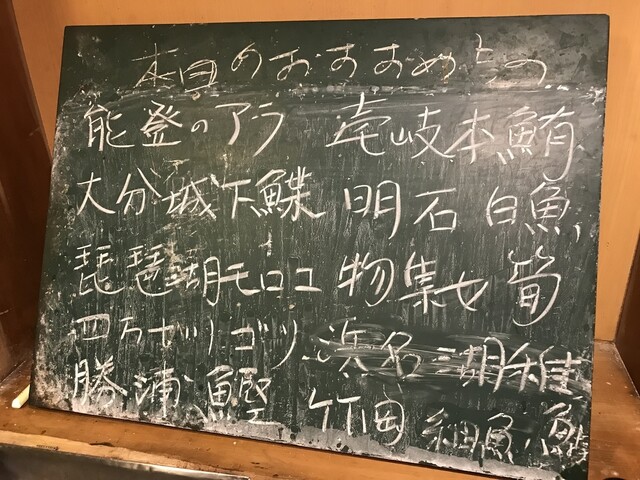 本日のおすすめもの
能登のアラ 壱岐本鮪
大分城下鰈 明石白魚
琵琶湖モロコ 物集女筍
四万十川ゴリ 浜名湖稚
勝浦鰹 竹岡細魚